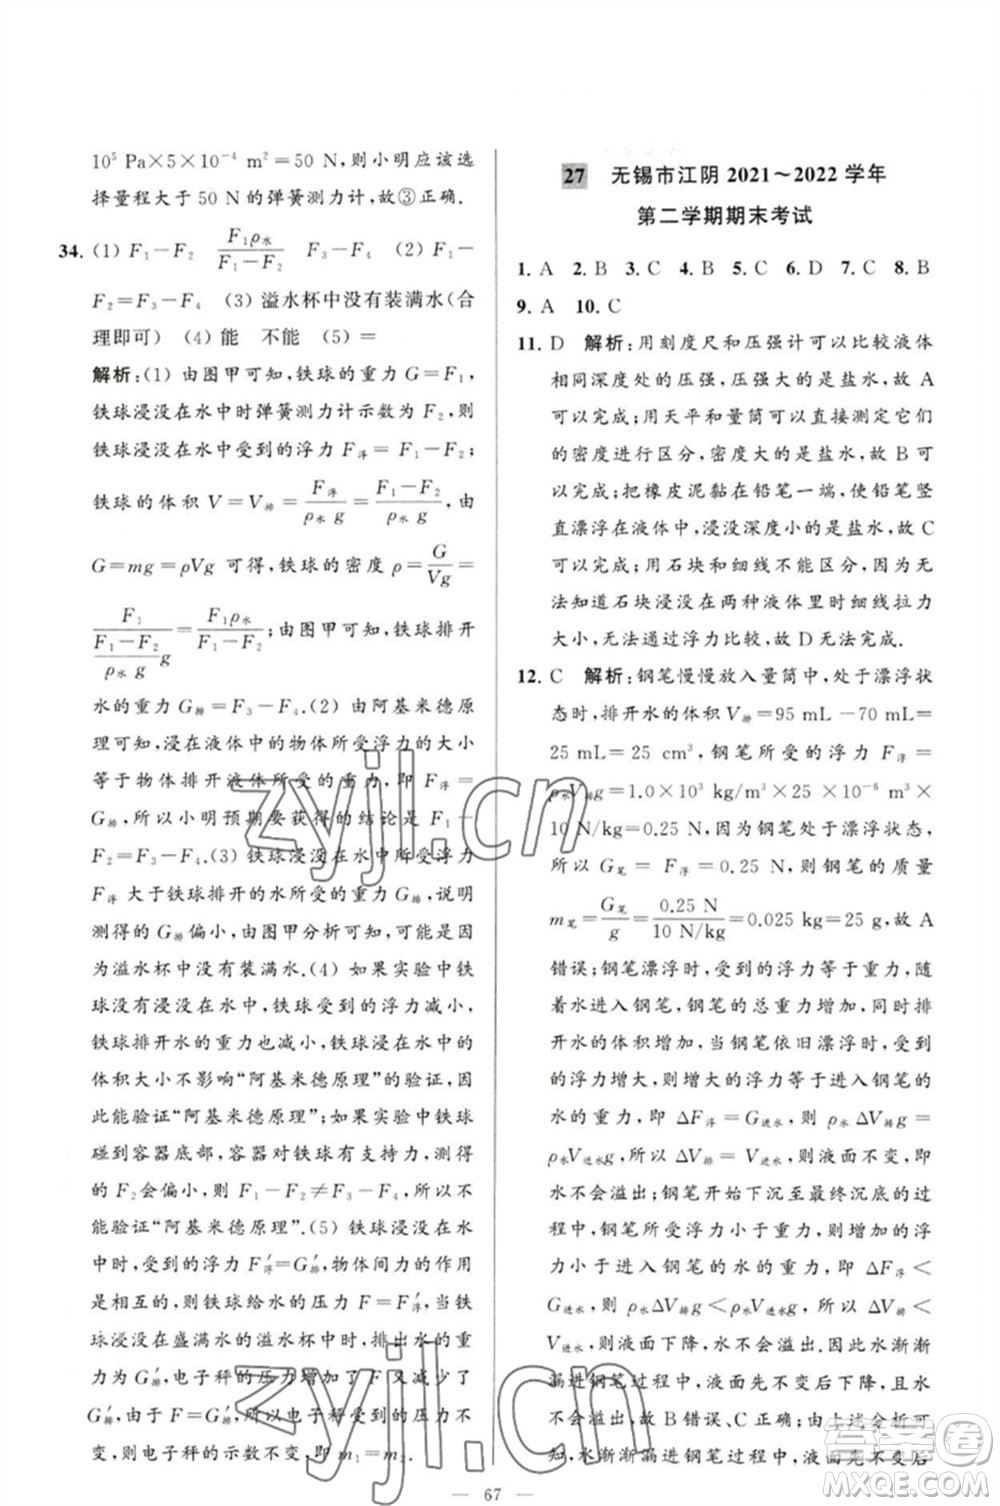 10⁵ Pa×5×10⁻⁴ m²=50 N,则小明应该选
择量程大于 50 N 的弹簧测力计.故③正确.
34. (1) F₁-F₂ F₁ρ水/(F₁-F₂) (2) F₁-
F₂=F₃-F₄ (3) 溢水杯中没有装满水(合
理即可) (4) 能 不能 (5) =
解析:(1) 由图甲可知,铁球的重力 G=F₁,
铁球浸没在水中时弹簧测力计示数为 F₂,则
铁球浸没在水中受到的浮力 F浮=F₁-F₂.
铁球的体积 V=V排=F浮/(ρ水 g)=(F₁-F₂)/(ρ水 g),由
G=mg=ρVg 可得,铁球的密度 ρ=G/(Vg)=
F₁/((F₁-F₂)/(ρ水 g) g)=F₁ρ水/(F₁-F₂);由图甲可知,铁球排开
水的重力 G排=F₃-F₄.(2) 由阿基米德原
理可知,浸在液体中的物体所受浮力的大小
等于物体排开液体所受的重力,即 F浮=
G排,所以小明预期要获得的结论是 F₁-
F₂=F₃-F₄.(3) 铁球浸没在水中所受浮力
F浮 大于铁球排开的水所受的重力 G排,说明
测得的 G排 偏小,由图甲分析可知,可能是因
为溢水杯中没有装满水.(4) 如果实验中铁
球没有浸没在水中,铁球受到的浮力减小,
铁球排开水的重力也减小,铁球浸没在水中的
体积大小不影响“阿基米德原理”的验证,因
此能验证“阿基米德原理”;如果实验中铁球
碰到容器底部,容器对铁球有支持力,测得
的 F₂会偏小,则 F₁-F₂≠F₃-F₄,所以不
能验证“阿基米德原理”.(5) 铁球浸没在水
中时,所受的浮力 F浮′=G排′,由物体间力的作用
是相互的,则铁球给水的压力 F=F浮′,当铁
球浸没在盛满水的溢水杯中时,排出水的重
力为 G排′,电子秤的压力增加了 F 又减少了
G排′,由于 F=G排′,所以电子秤的压力不变,
则电子秤的示数不变,即 m₁=m₂.
27 无锡市江阴 2021～2022 学年
第二学期期末考试
1. A 2. B 3. C 4. B 5. C 6. D 7. C 8. B
9. A 10. C
11. D 解析:用刻度尺和压强计可以比较液体
相同深度处的压强,压强大的是盐水,故 A
可以完成;用天平和量筒可以直接测定它们
的密度进行区分,密度大的是盐水,故 B 可
以完成;把橡皮泥黏在铅笔一端,使铅笔竖
直漂浮在液体中,浸没深度小的是盐水,故 C
可以完成;用石块和细线不能区分,因为无
法知道石块浸没在两种液体里时细线拉力
大小,无法通过浮力比较,故 D 无法完成.
12. C 解析:钢笔慢慢放入量筒中,处于漂浮状
态时,排开水的体积 V排=95 mL-70 mL=
25 mL=25 cm³,钢笔所受的浮力 F浮=
ρ水V排g=1.0×10³ kg/m³×25×10⁻⁶ m³×
10 N/kg=0.25 N,因为钢笔处于漂浮状态,
所以 G笔=F浮=0.25 N,则钢笔的质量
m笔=G笔/g=0.25 N/(10 N/kg)=0.025 kg=25 g,故 A
错误;钢笔漂浮时,受到的浮力等于重力,随
着水进入钢笔,钢笔的总重力增加,同时排
开水的体积增加,当钢笔依旧漂浮时,受到
的浮力增大,则增大的浮力等于进入钢笔的
水的重力,即 ΔF浮=G进水,则 ρ水ΔV排g=
ρ水V进水g,所以 ΔV排=V进水,则液面不变,
水不会溢出;钢笔从下沉到最终沉底的过
程中,钢笔所受浮力小于重力,即增加的浮
力小于进入钢笔的水的重力,即 ΔF浮<
G进水,则 ρ水ΔV排g<ρ水V进水g,即 ΔV排<
V进水,则液面下降,水不会溢出.所以水渐渐
漏进钢笔过程中,液面先不变后下降,且水
不会溢出,故 B 错误、C 正确;由上述分析可
知,水渐渐漏进钢笔过程中,液面先不变后
67
zyjl.cn
zyjl.cn
答案圈
MXQE.COM